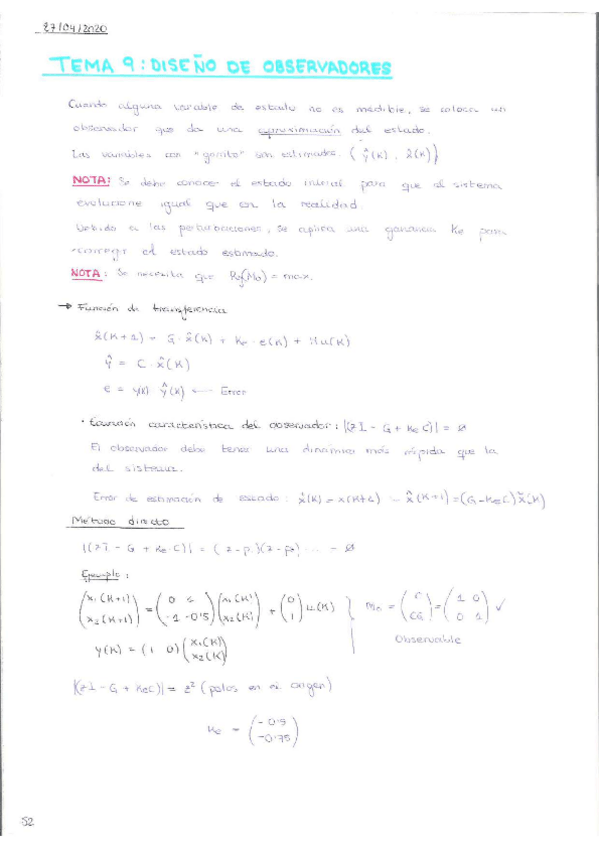 27/04/2020
TEMA 9: DISEÑO DE OBSERVADORES
Cuando alguna variable de estado no es medible, se coloca un
observador que da una aproximación del estado.
Las variables con "gorrito" son estimadas. (ŷ(K), x̂(K))
NOTA: Se debe conocer el estado inicial para que el sistema
evolucione igual que en la realidad
Debido a las perturbaciones, se aplica una ganancia Ke para
corregir el estado estimado.
NOTA: Se necesita que Rg(Mo) = max.
→ Función de transferencia
x̂(K+1) = G · x̂(K) + Ke · e(K) + H u(K)
ŷ = C · x̂(K)
e = y(K) ŷ(K) ← Error
· Ecuación característica del observador: |(zI - G + KeC)| = ∅
El observador debe tener una dinámica más rápida que la
del sistema.
Error de estimación de estado: x̃(K) = x(K+1) - x̂(K+1) = (G - KeC) x̃(K)
Método directo
|(zI - G + Ke·C)| = (z-p.)(z-p.) ... = ∅
Ejemplo:
(x₁(K+1) x₂(K+1)) = (0 1 -1 -0'5) (x₁(K) x₂(K)) + (0 1) u(K) } Mo = (C CG) = (1 0 0 1) ✓
Observable
y(K) = (1 0) (x₁(K) x₂(K))
|(zI - G + KeC)| = z² (polos en el origen)
Ke = (-0'5 -0'75)
52